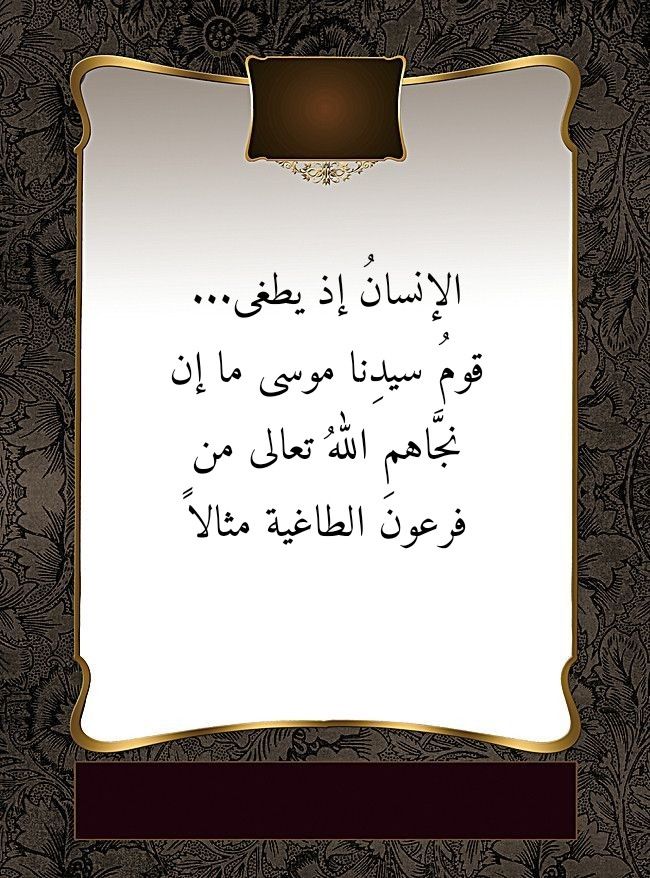 الإنسانُ إذ يطغى...
قومُ سيدِنا موسى ما إن
نجَّاهم اللهُ تعالى من
فرعونَ الطاغية مثالاً